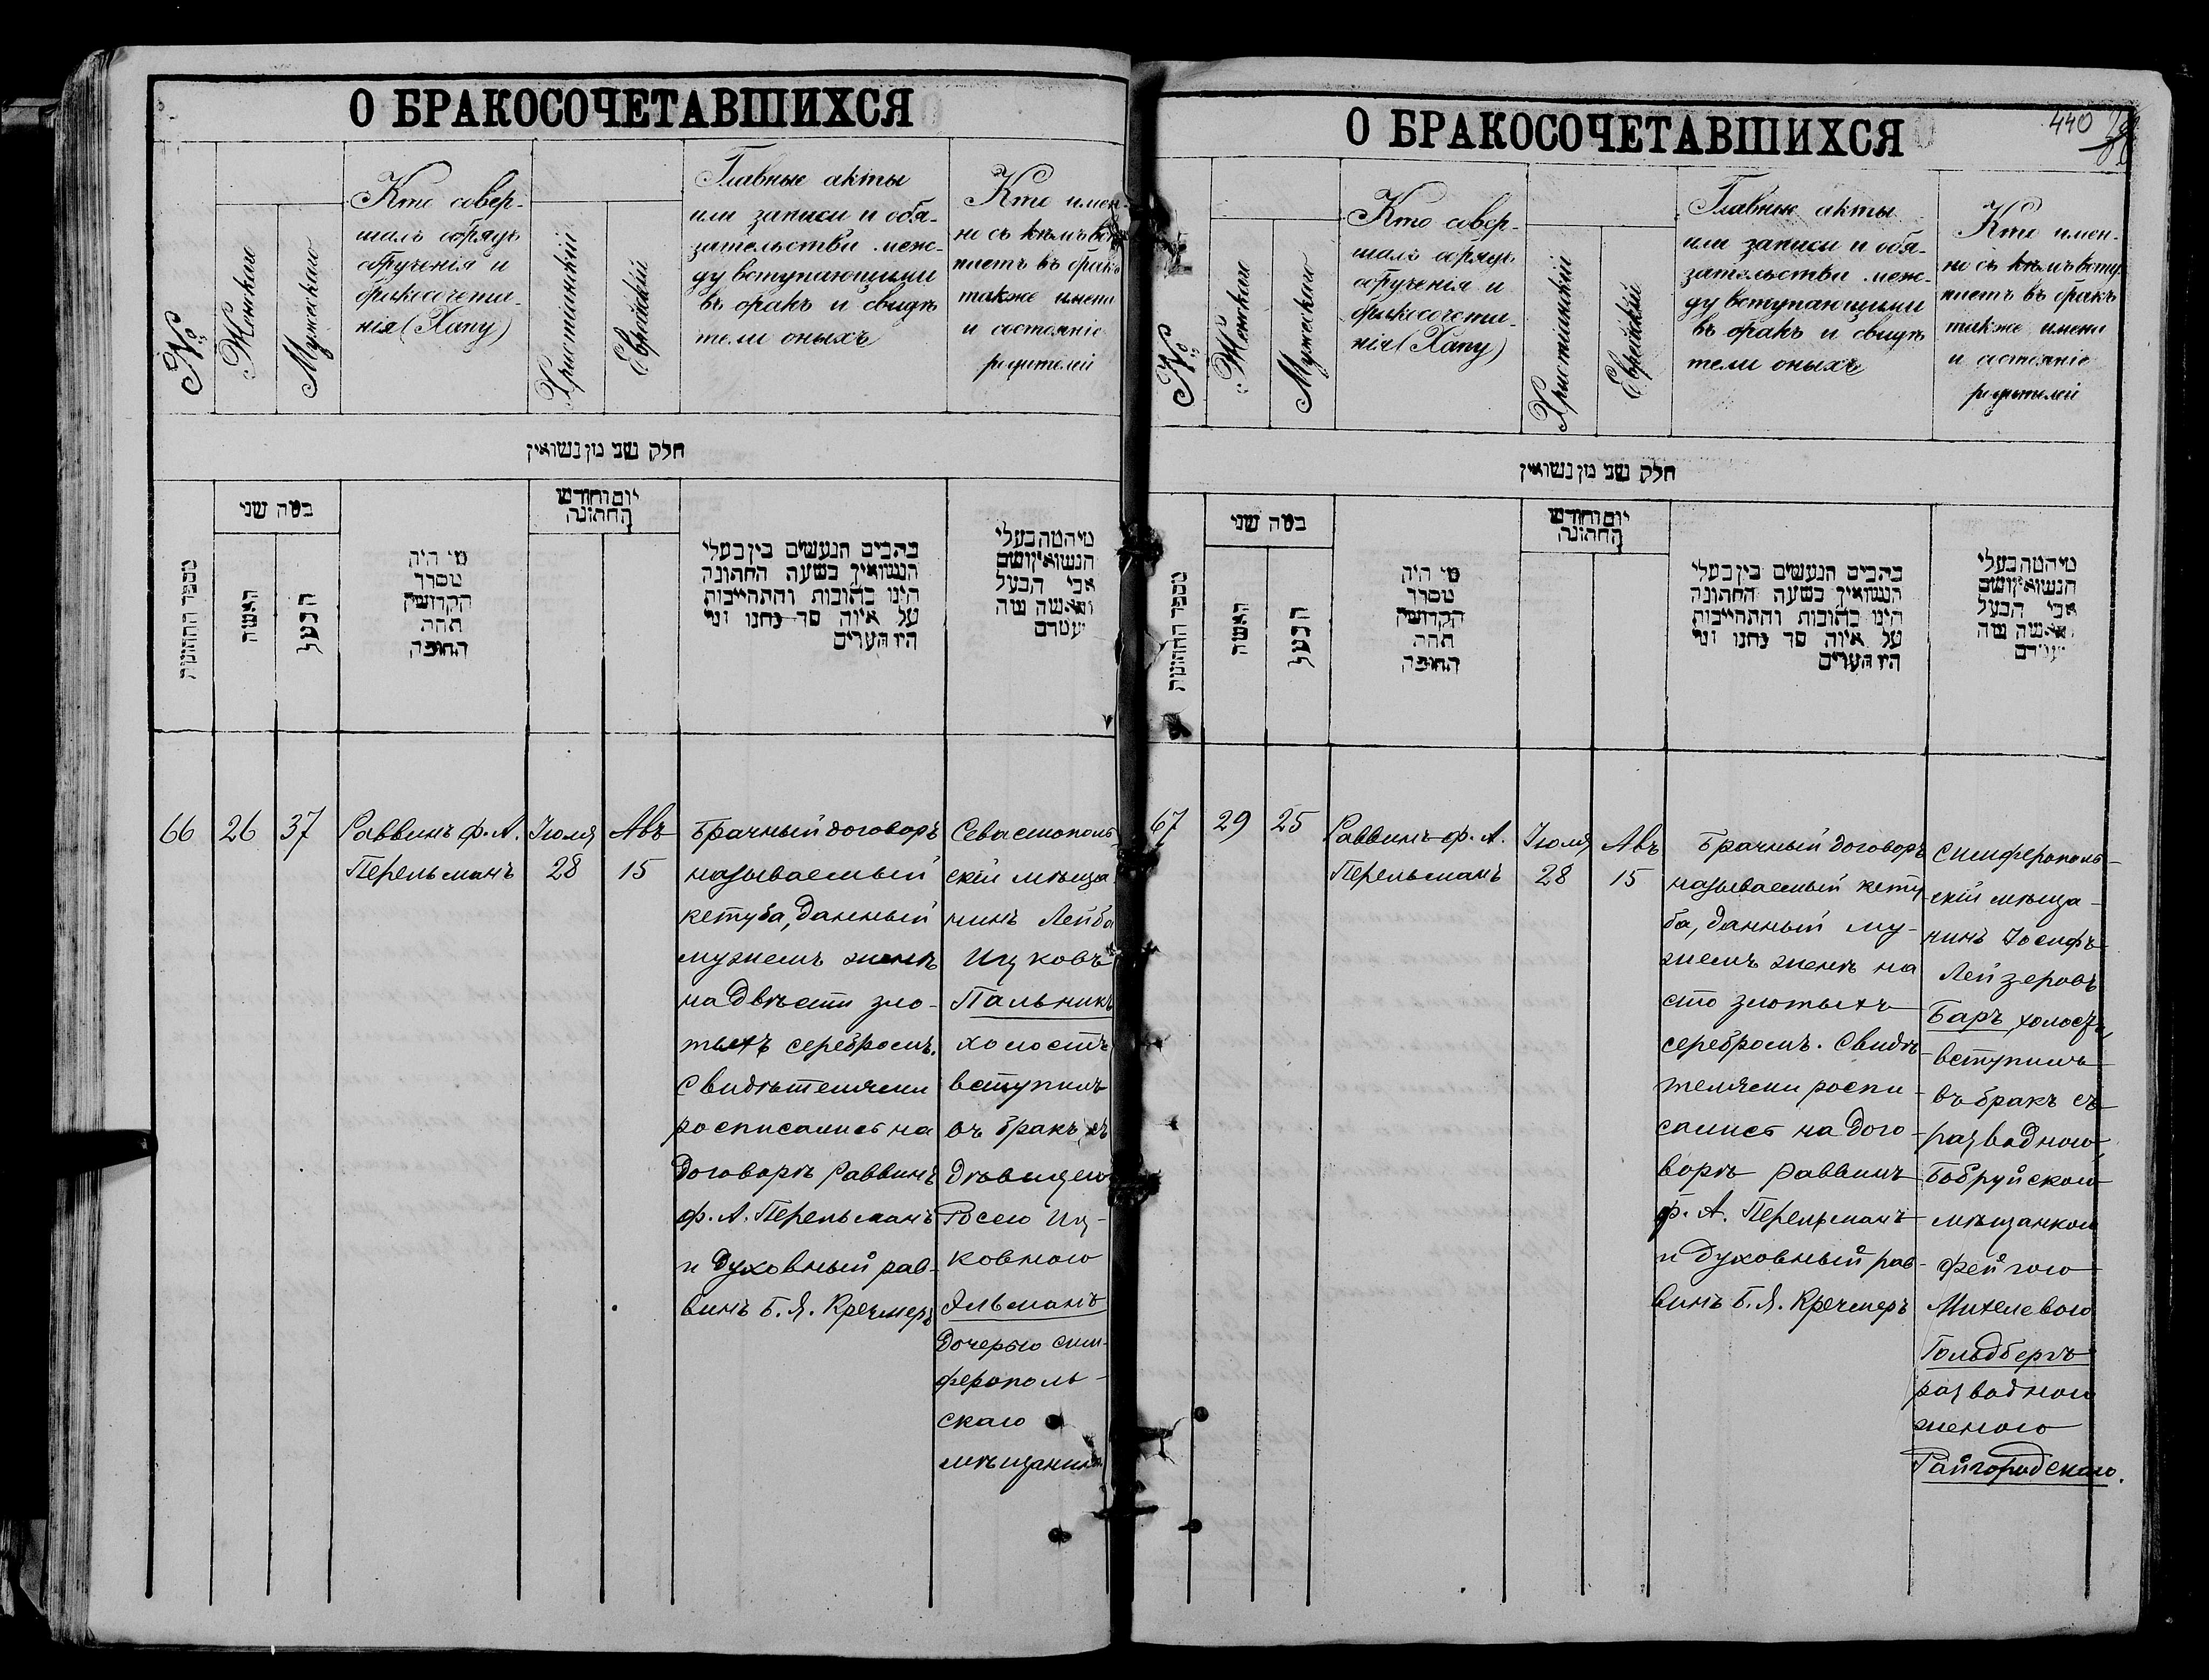 О БРАКОСОЧЕТАВШИХСЯ
№
Женскаго
Мужескаго
Кто совер-
шалъ обрядъ
обрученія и
бракосочета-
нія (Хапу)
Христіанскій
Еврейскій
Главные акты
или записи и обя-
зательства меж-
ду вступающими
въ бракъ и свидѣ
тели оныхъ
Кто имен-
но съ кѣмъ всту
паетъ въ бракъ
также имена
и состояніе
родителей
חלק שני מן נשואין
מספר החתונות
כמה שני
האשה
הבעל
מי היה
מסדר
הקדושין
תחת
החופה
יום וחודש
החתונה
כתבים הנעשים בין בעלי
הנשואין בשעה החתונה
היינו כתובות והתחייבות
על איזה סך נתנו ומי
היו העדים
הנשואין ושם
אבי הבעל
66
26
37
Раввинъ Ф. А.
Перельманъ
Іюля
28
Авъ
15
Брачный договоръ
называемый
кетуба, данный
мужемъ женѣ
на двѣсти зло-
тыхъ серебромъ.
Свидѣтелями
росписались на
договорѣ раввинъ
Ф. А. Перельманъ
и духовный рав-
винъ Б. Я. Кречмеръ
Севастополь
скій мѣща-
нинъ Лейба
Ицковъ
Пальникъ
холостъ
вступилъ
въ бракъ съ
дѣвицею
Росею Иц-
ковною
Эльманъ
дочерью сим-
ферополь-
скаго
мѣщанина
О БРАКОСОЧЕТАВШИХСЯ
440
№
Женскаго
Мужескаго
Кто совер-
шалъ обрядъ
обрученія и
бракосочета-
нія (Хапу)
Христіанскій
Еврейскій
Главные акты
или записи и обя-
зательства меж-
ду вступающими
въ бракъ и свидѣ
тели оныхъ
Кто имен-
но съ кѣмъ всту
паетъ въ бракъ
также имена
и состояніе
родителей
חלק שני מן נשואין
מספר החתונות
כמה שני
האשה
הבעל
מי היה
מסדר
הקדושין
תחת
החופה
יום וחודש
החתונה
כתבים הנעשים בין בעלי
הנשואין בשעה החתונה
היינו כתובות והתחייבות
על איזה סך נתנו ומי
היו העדים
הנשואין ושם
אבי הבעל
67
29
25
Раввинъ Ф. А.
Перельманъ
Іюля
28
Авъ
15
Брачный договоръ
называемый кету
ба, данный му-
жемъ женѣ на
сто злотыхъ
серебромъ. Свидѣ-
телями роспи-
сались на дого-
ворѣ раввинъ
Ф. А. Перельманъ
и духовный рав-
винъ Б. Я. Кречмеръ
Симферополь-
скій мѣща-
нинъ Іосифъ
Лейзеровъ
Баръ, холостъ,
вступилъ
въ бракъ съ
разводною
Бобруйскою
мѣщанкою
Фейгою
Михелевою
Гольдбергъ
разводною
женою
Райгородскаго.